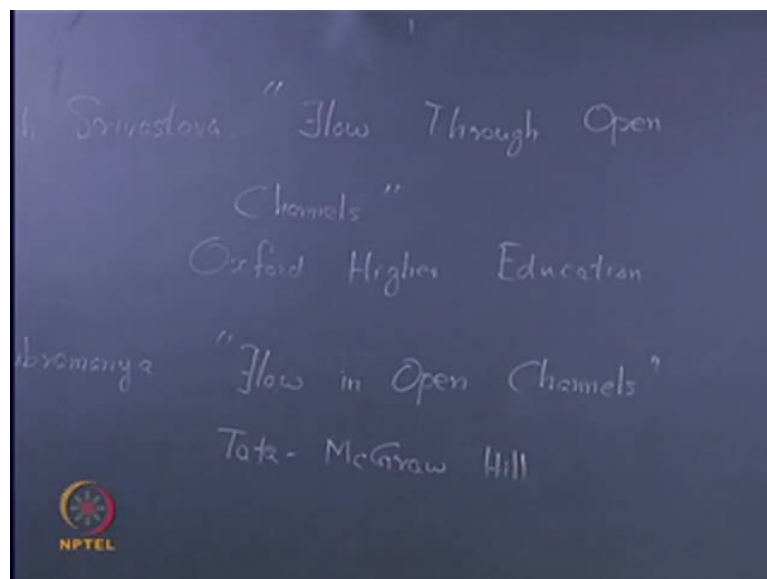 Srivastava. "Flow Through Open
Channels"
Oxford Higher Education
bramanya "Flow in Open Channels"
Tata-McGraw Hill
NPTEL